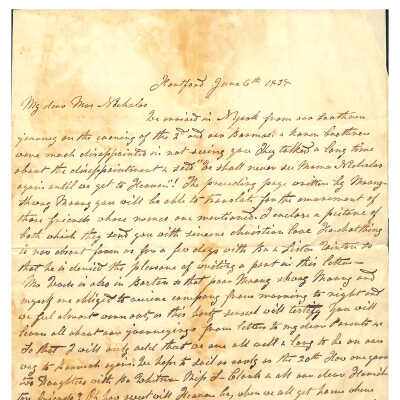 Hartford June 6th 1835
My dear Mrs Nicholas
We arrived in N York from our southern
journey on the evening of the 2d and our Burman & Karen brethren
were much disappointed in not seeing you They talked a long time
about the disappointment & said "We shall never see Mama Nicholas
again until we get to Heaven"! The preceding page written by Moung
Shway Moung you will be able to translate for the amusement of
those friends whose names are mentioned. I enclose a picture of
both which they send you with sincere christian love
is now absent from us for a few days with Br & Sister
that he is denied the pleasure of writing a part in this letter—
Mr Wade is also in Boston so that poor Moung Shway Moung and
myself are obliged to receive company from morning to night and
we feel almost worn out, as this hasty scrawl will testify You will
learn all about our journeyings from letters to my dear Parents
So that I will only add that we are all well & long to be on our
way to again. We hope to sail as early as the 20th How one
Daughters with the Miss L. Clark & all our dear
friends? Oh how sweet will Heaven be, when we all get home where